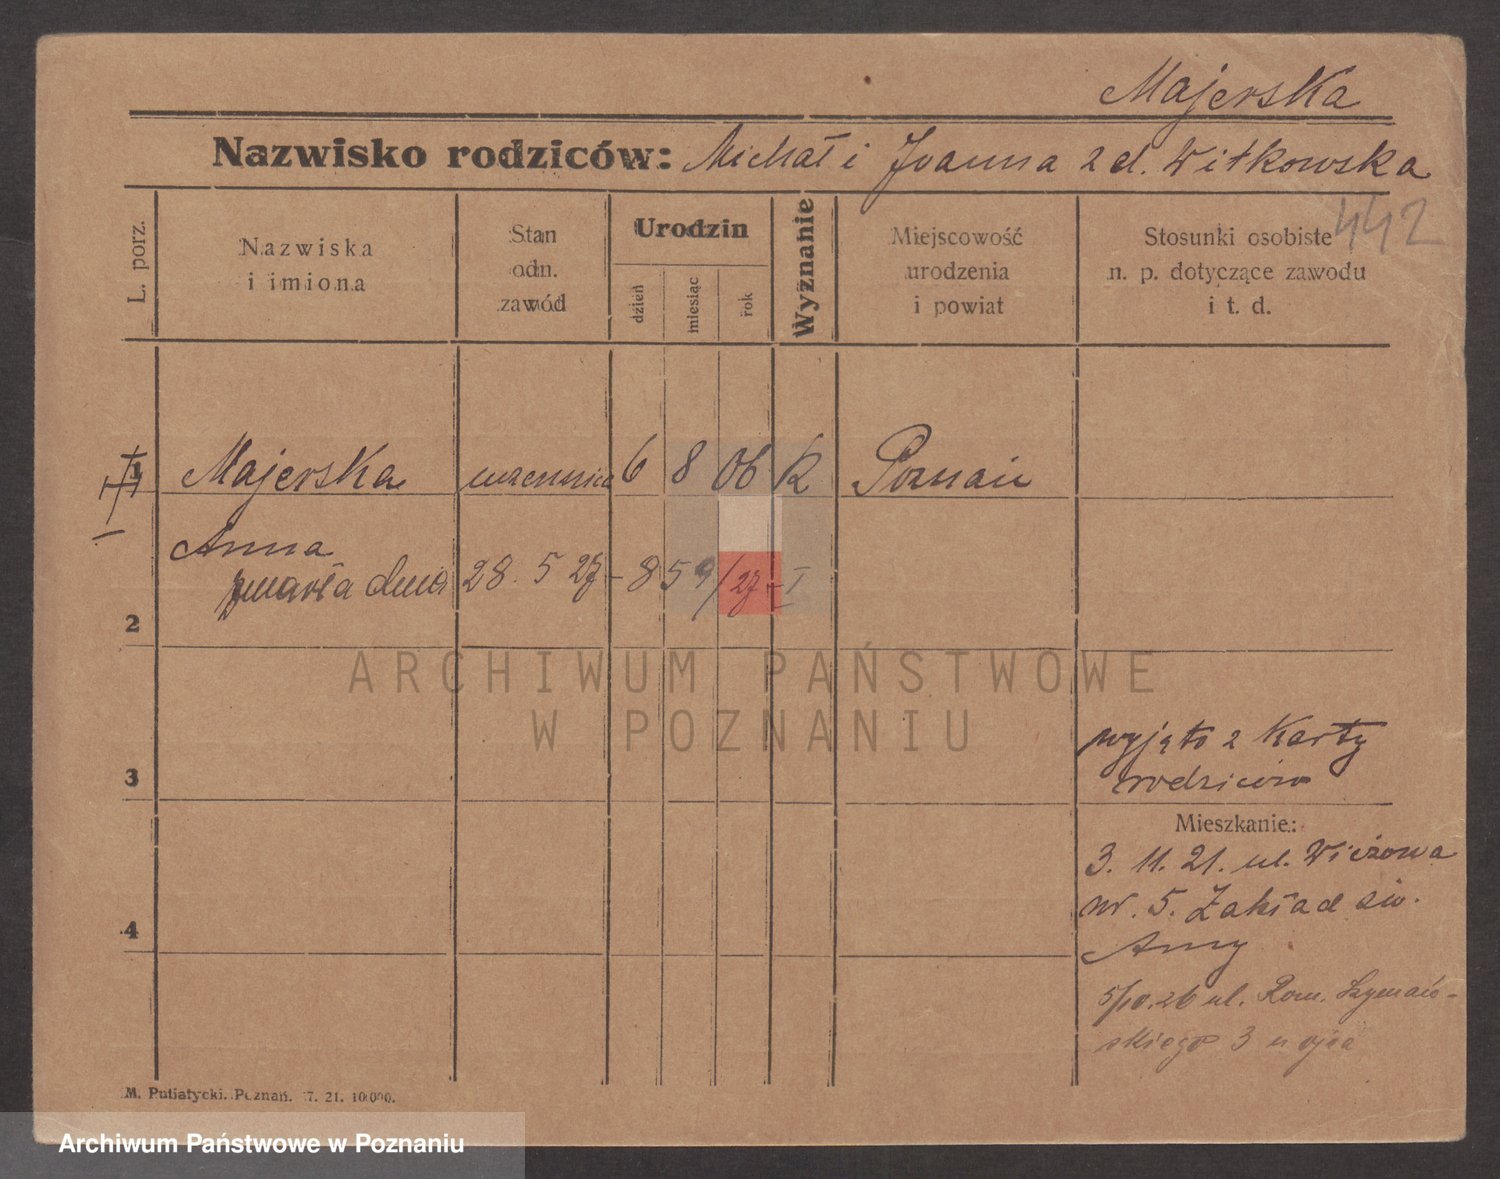 Majerska
Nazwisko rodziców: Michał i Joanna z d. Witkowska
442
L. porz.
Nazwiska
i imiona
Stan
odn.
zawód
Urodzin
dzień
miesiąc
rok
Wyznanie
Miejscowość
urodzenia
i powiat
Stosunki osobiste
n. p. dotyczące zawodu
i t. d.
1 Majerska uczennica 6 8 06 K Poznań
Anna
zmarła dnia 28. 5 27 - 859/27 - I
2
ARCHIWUM PAŃSTWOWE
W POZNANIU
wyjęto z Karty
rodziców
3
Mieszkanie:
3. 11. 21. ul. Wieżowa
nr. 5. Zakład św.
Anny
4
5/10.26 ul. Rom. Szymań-
skiego 3 u ojca
M. Putiatycki. Poznań. 7. 21. 10000.
Archiwum Państwowe w Poznaniu